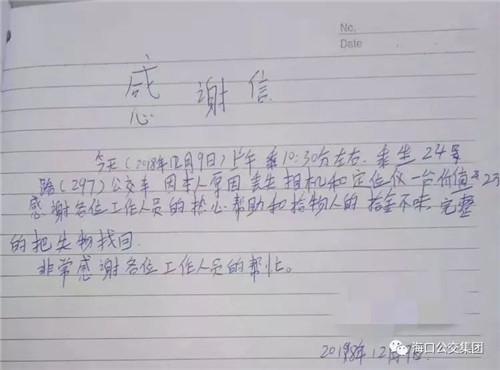 No.
Date
感谢信
今天(2018年12月9日)上午 乘10:30分左右. 乘坐 24号
路(297)公交车 因本人原因 丢失 相机和定位仪一台价值
感谢各位工作人员的热心帮助和拾物人的 拾金不昧 完整
的把失物找回.
非常感谢各位工作人员的帮忙。
2018年12月
海口公交集团